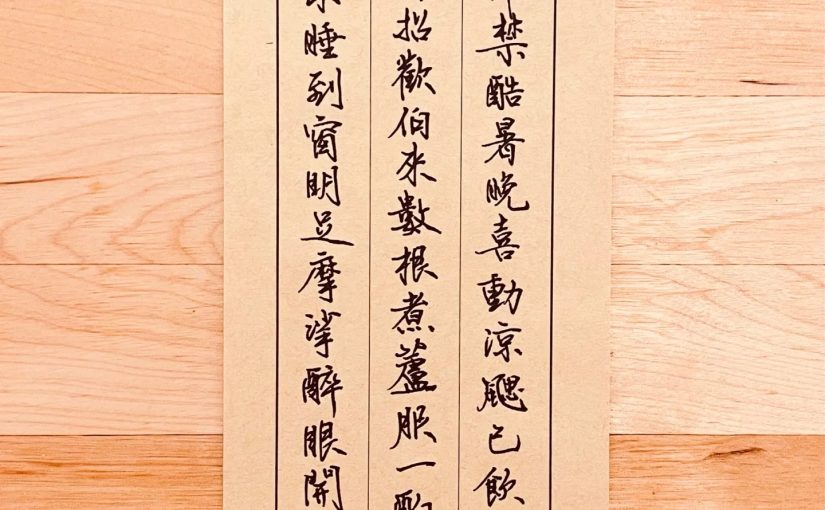 禁酷暑晚喜動涼颸已飲
招歡伯來數根煮蘆服一
睡到窗明足摩挲醉眼開